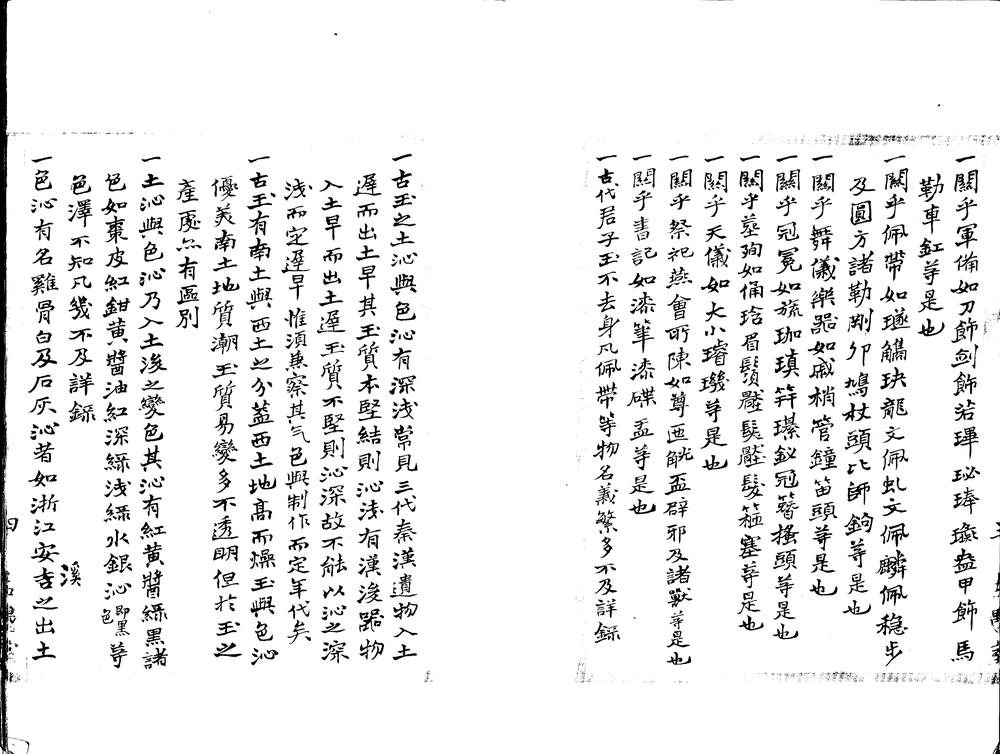 一關乎軍備如刀飾劍飾若琿珌琫璏盎甲飾馬
勒車釭等是也
一關乎佩帶如璲觿玦龍文佩虬文佩麟佩穩步
及圓方諸勒剛卯鳩杖頭比師鉤等是也
一關乎舞儀樂器如戚梢管鐘笛頭等是也
一關乎冠冕如旒珈瑱笄璂釵冠簪搔頭等是也
一關乎墓殉如俑琀眉鬚壓鬂壓髮箍塞等是也
一關乎天儀如大小璿璣等是也
一關乎祭祀燕會所陳如尊匜觥盃辟邪及諸獸等是也
一關乎書記如漆筆漆碟盂等是也
一古代君子玉不去身凡佩帶等物名義繁多不及詳錄
一古玉之土沁與色沁有深淺常見三代秦漢遺物入土
遲而出土早其玉質本堅結則沁淺有漢後器物
入土早而出土遲玉質不堅則沁深故不能以沁之深
淺而定遲早惟須兼察其气色與制作而定年代矣
一古玉有南土與西土之分蓋西土地高而燥玉與色沁
優美南土地質潮玉質易變多不透明但於玉之
產處亦有區別
一土沁與色沁乃入土後之變色其沁有紅黃醬綠黑諸
色如棗皮紅鉗黃醬油紅深綠淺綠水銀沁即黑色等
色澤不知凡幾不及詳錄
溪
一色沁有名雞骨白及石灰沁者如浙江安吉之出土
四